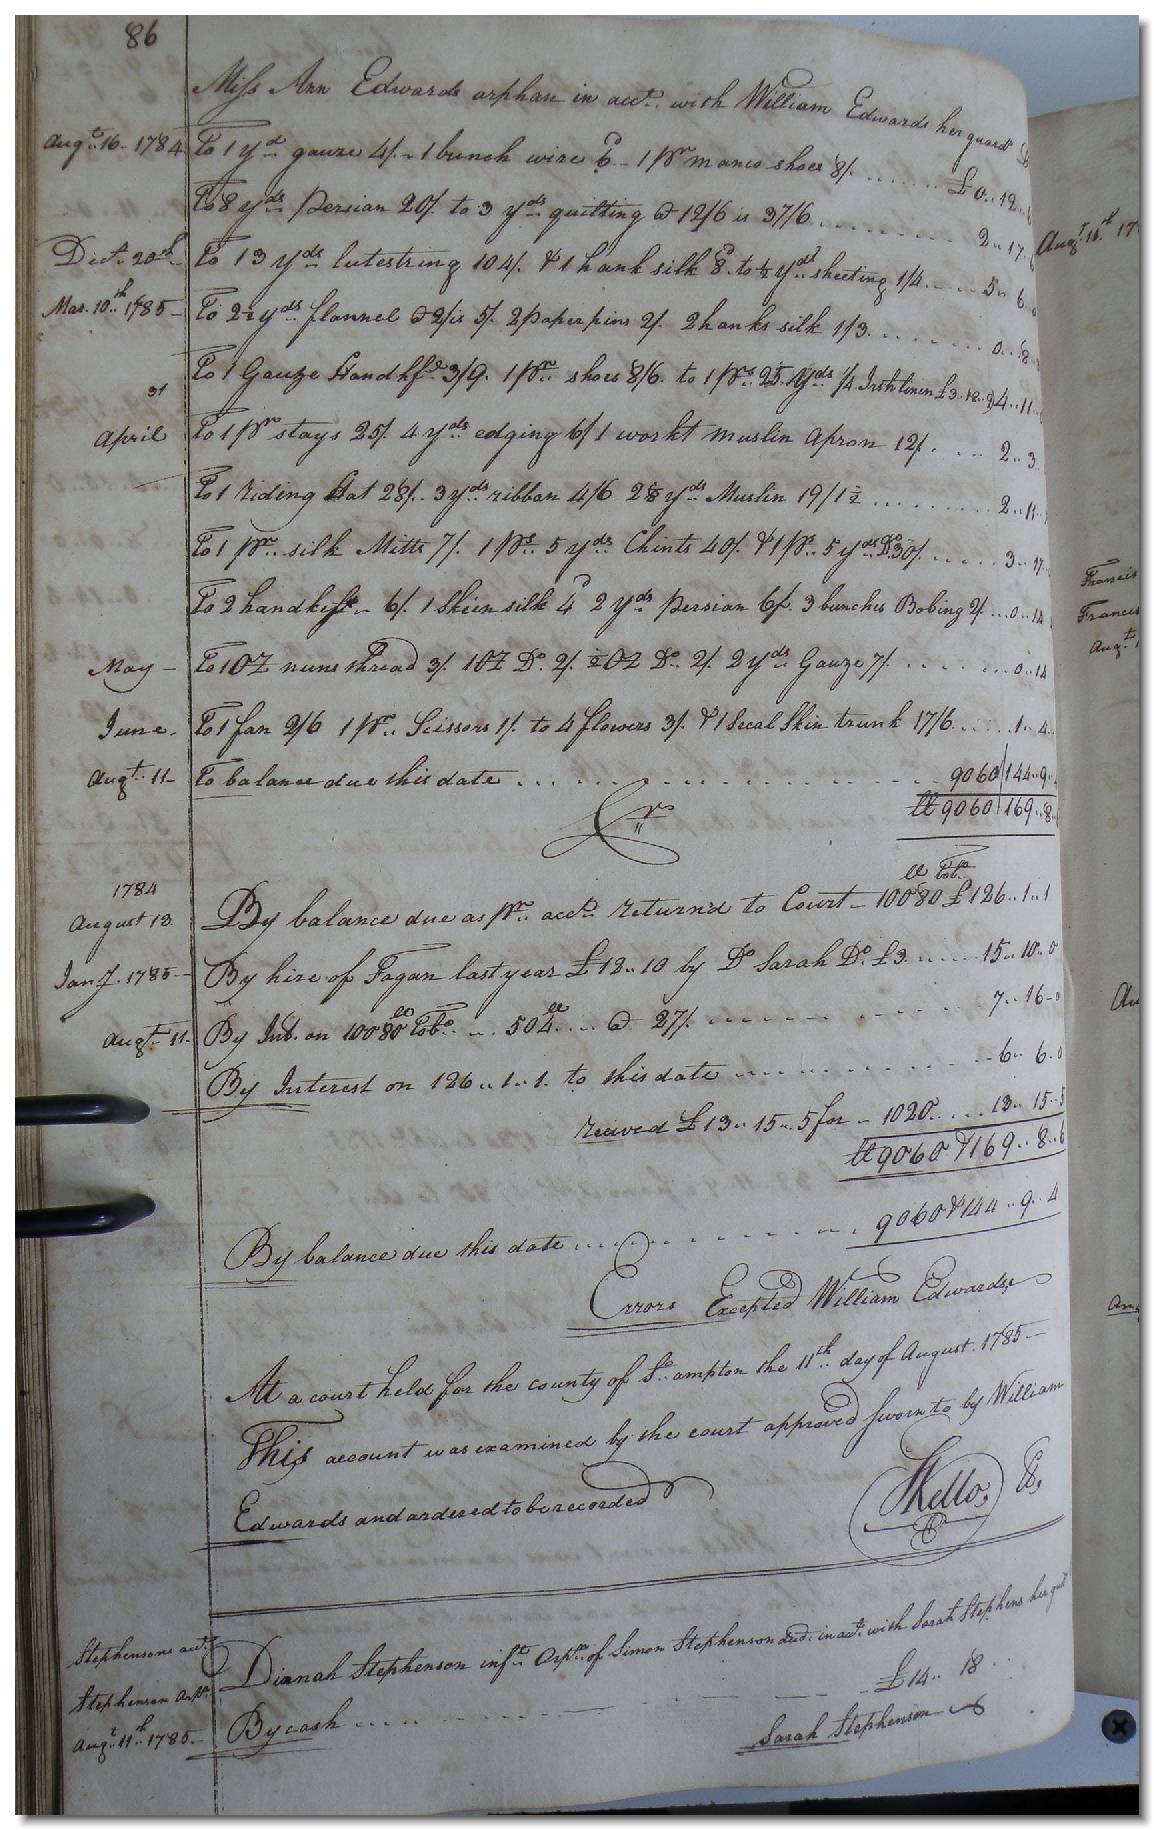 86
Miss Ann Edwards orphan in acct. with William Edwards her guardn
Augt. 16. 1784 To 1 yd gauze 4/. 1 bunch wire 6d. 1 pr manco shoes 8/. ...... £0..12..
To 8 yds Persian 20/. to 3 yds quilting @ 12/6 is 37/6 ........ 2..17
Decr. 20th To 13 yds lutestring 104/. & 1 hank silk 8d. to ½ yd sheeting 1/4 ..... 5..6
Mar. 10th 1785 To 2½ yds flannel @ 2/ is 5/. 2 paper pins 2/. 2 hanks silk 1/3 ....... 0..8
To 1 Gauze Handkf. 3/9. 1 pr. shoes 8/6. to 1 ps. 25 yds ¼ Irish linen £3..18..9 4..11
31
April To 1 pr stays 25/. 4 yds edging 6/. 1 workt muslin Apron 12/. .... 2..3
To 1 riding Hat 28/. 3 yds ribban 4/6 2⅛ yds Muslin 19/1½ ........ 2..11
To 1 pr. silk Mitts 7/. 1 ps. 5 yds Chints 40/. & 1 ps. 5 yds Do. 30/. ..... 3..17
To 2 handkfs. 6/. 1 skein silk 4d 2 yds Persian 6/. 3 bunches Bobing 2/. ...0..14
May To 1 OZ nuns thread 3/. 1 OZ Do. 2/. ½ OZ Do. 2/. 2 yds Gauze 7/. ....... 0..14
June. To 1 fan 2/6 1 pr. Scissors 1/. to 4 flowers 3/. & 1 Seal Skin trunk 17/6 ..... 1..4
Augt. 11 To balance due this date ........ 9060 144..9
Crs
lb 9060 169..8
lb Tobo
1784
August 12 By balance due as pr. acct. return'd to Court 10080 £126..1..1
Jany. 1785 By hire of Fagan last year £12..10 by Do Sarah Do. £3 ..... 15..10..0
Augt. 11 By Int. on 10080 lb Tobo .. 504 lb .... @ 27/. ........ 7..16..0
By Interest on 126..1..1. to this date ........ 6..6..0
received £13..15..5 for 1020 ..... 13..15..5
lb 9060 & 169..8..6
By balance due this date ........ 9060 & 144..9..4
Errors Excepted William Edwards
At a court held for the county of So. ampton the 11th. day of August. 1785
This account was examined by the court approved sworn to by William
Edwards and ordered to be recorded
SKello, Cl,
Cl
Stephensons acct.
Dianah Stephenson inft. Orpn. of Simon Stephenson decd. in act. with Sarah Stephens her gud
Stephenson orpn.
£14..18
Augt. 11th. 1785. By cash ........
Sarah Stephenson
Augt. 16th. 17
Francis
Frances
Augt.